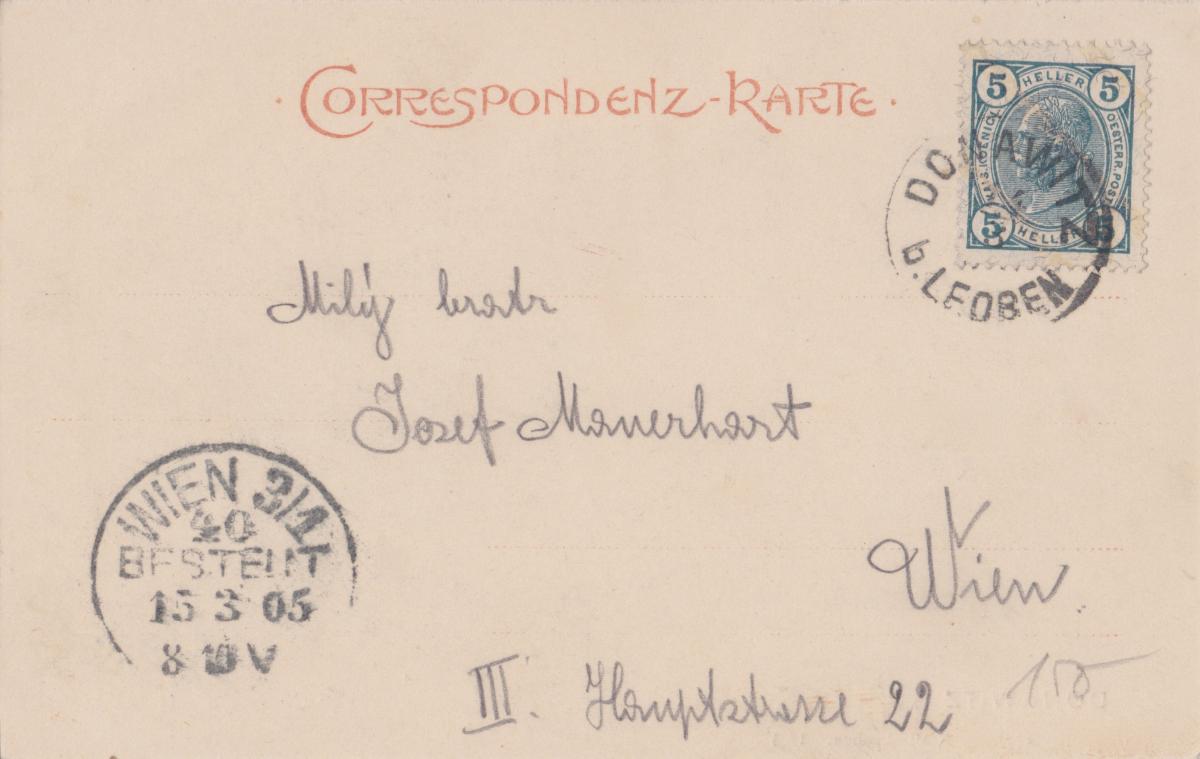 CORRESPONDENZ-KARTE
5 HELLER 5
KAIS. KOENIGL. OESTERR. POST
5 HELLER 5
DONAWITZ
b. LEOBEN
Milý bratr
Jozef Mauerhart
Wien
III. Hauptstrasse 22
150
WIEN 3/1
40
BESTELLT
15 3 05
8 V